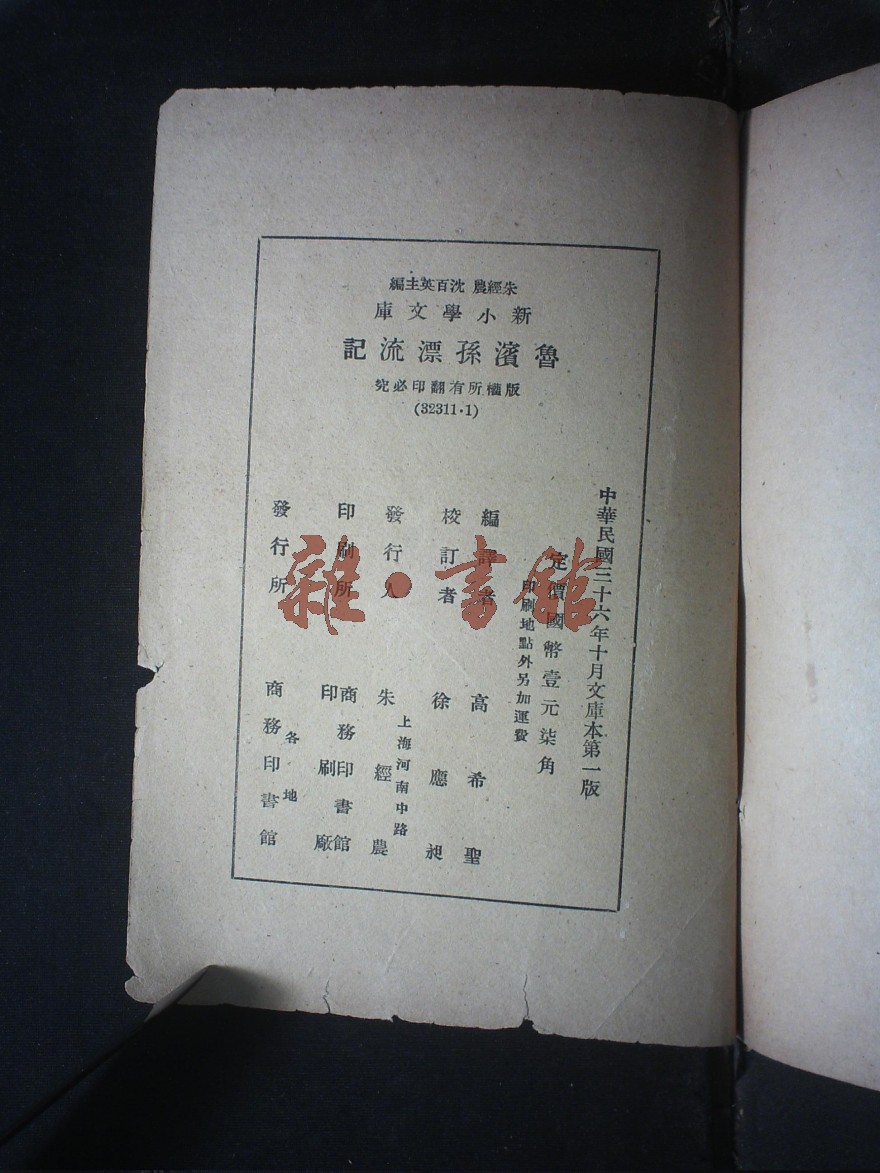 朱經農 沈百英主編
新小學文庫
魯濱孫漂流記
版權所有翻印必究
(32311·1)
中華民國三十六年十月文庫本第一版
定價國幣壹元柒角
印刷地點外另加運費
編譯者 高希聖
校訂者 徐應昶
上海河南中路
發行人 朱經農
印刷所 商務印書館
印刷廠
各地
發行所 商務印書館
雜·書館